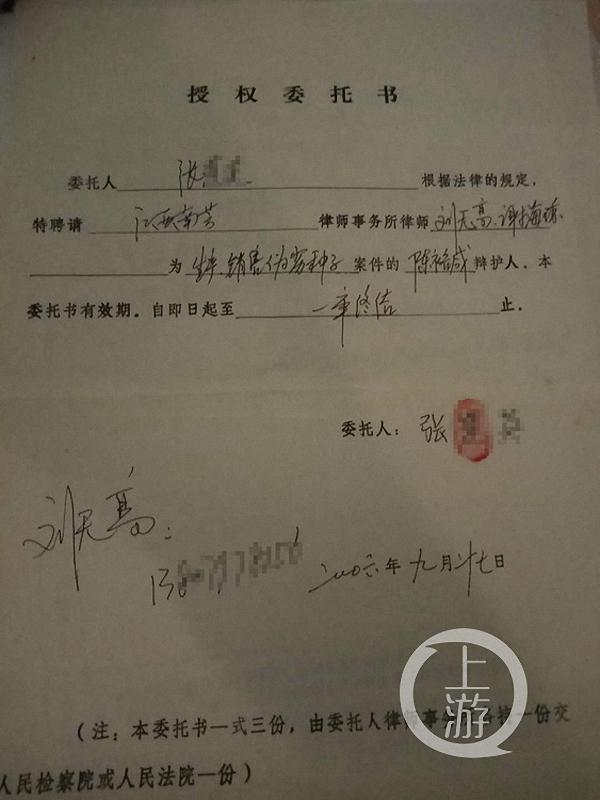 授权委托书
委托人 张 根据法律的规定，
特聘请 江西南芳 律师事务所律师 刘天高、谢
为 生产、销售伪劣种子 案件的 陈裕咸 辩护人。本
委托书有效期。自即日起至 一审终结 止．
委托人： 张
刘天高：
二〇〇六年九月廿七日
上游
（注：本委托书一式三份，由委托人律师事务所各执一份交
人民检察院或人民法院一份）